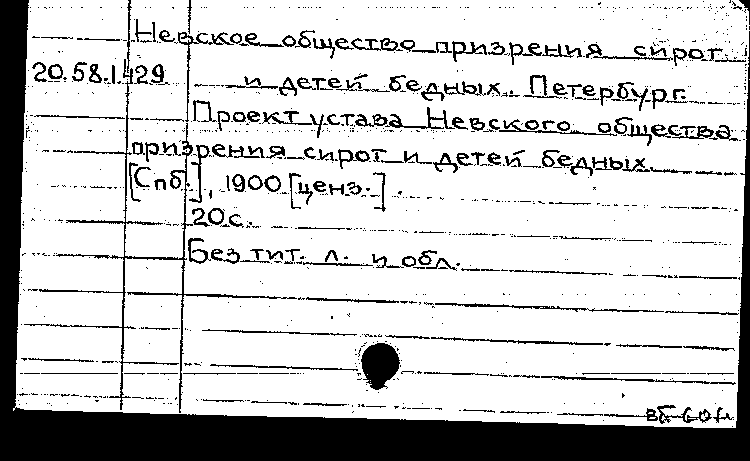 Невское общество призрения сирот
20.58.1.429 и детей бедных. Петербург.
Проект устава Невского общества
призрения сирот и детей бедных.
[Спб.], 1900 [ценз.].
20с.
Без тит. л. и обл.